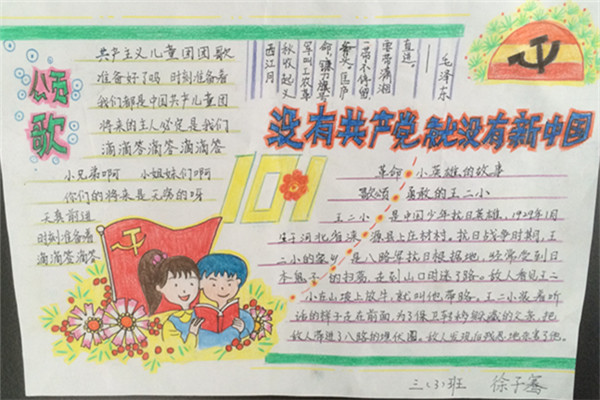 颂歌
共产主义儿童团团歌
准备好了吗 时刻准备着
我们都是中国共产儿童团
将来的主人必定是我们
滴滴答滴答滴滴答滴答
小兄弟啊 小姐妹们啊
你们的将来是无穷的呀
天真前进
时刻准备着
滴滴答滴答
西江月
秋收起义
军叫工农革
命,镰刀旗号
一带不停留
要带潇湘
直进。
——毛泽东
没有共产党就没有新中国
101
革命小英雄的故事
歌颂 勇敢的王二小
王二小 是中国少年抗日英雄,1929年1月
生于河北省涞源县上庄村村,抗日战争时期,王
二小的家乡是八路军抗日根据地,经常受到日
本鬼子的扫荡,走到山口时迷了路。敌人看见王二
小在山坡上放牛,就叫他带路。王二小装着听
话的样子走在前面,为了保卫转移躲藏的父亲,把
敌人带进了八路的埋伏圈。敌人发现后残忍地杀害了他。
三(3)班 徐子骞